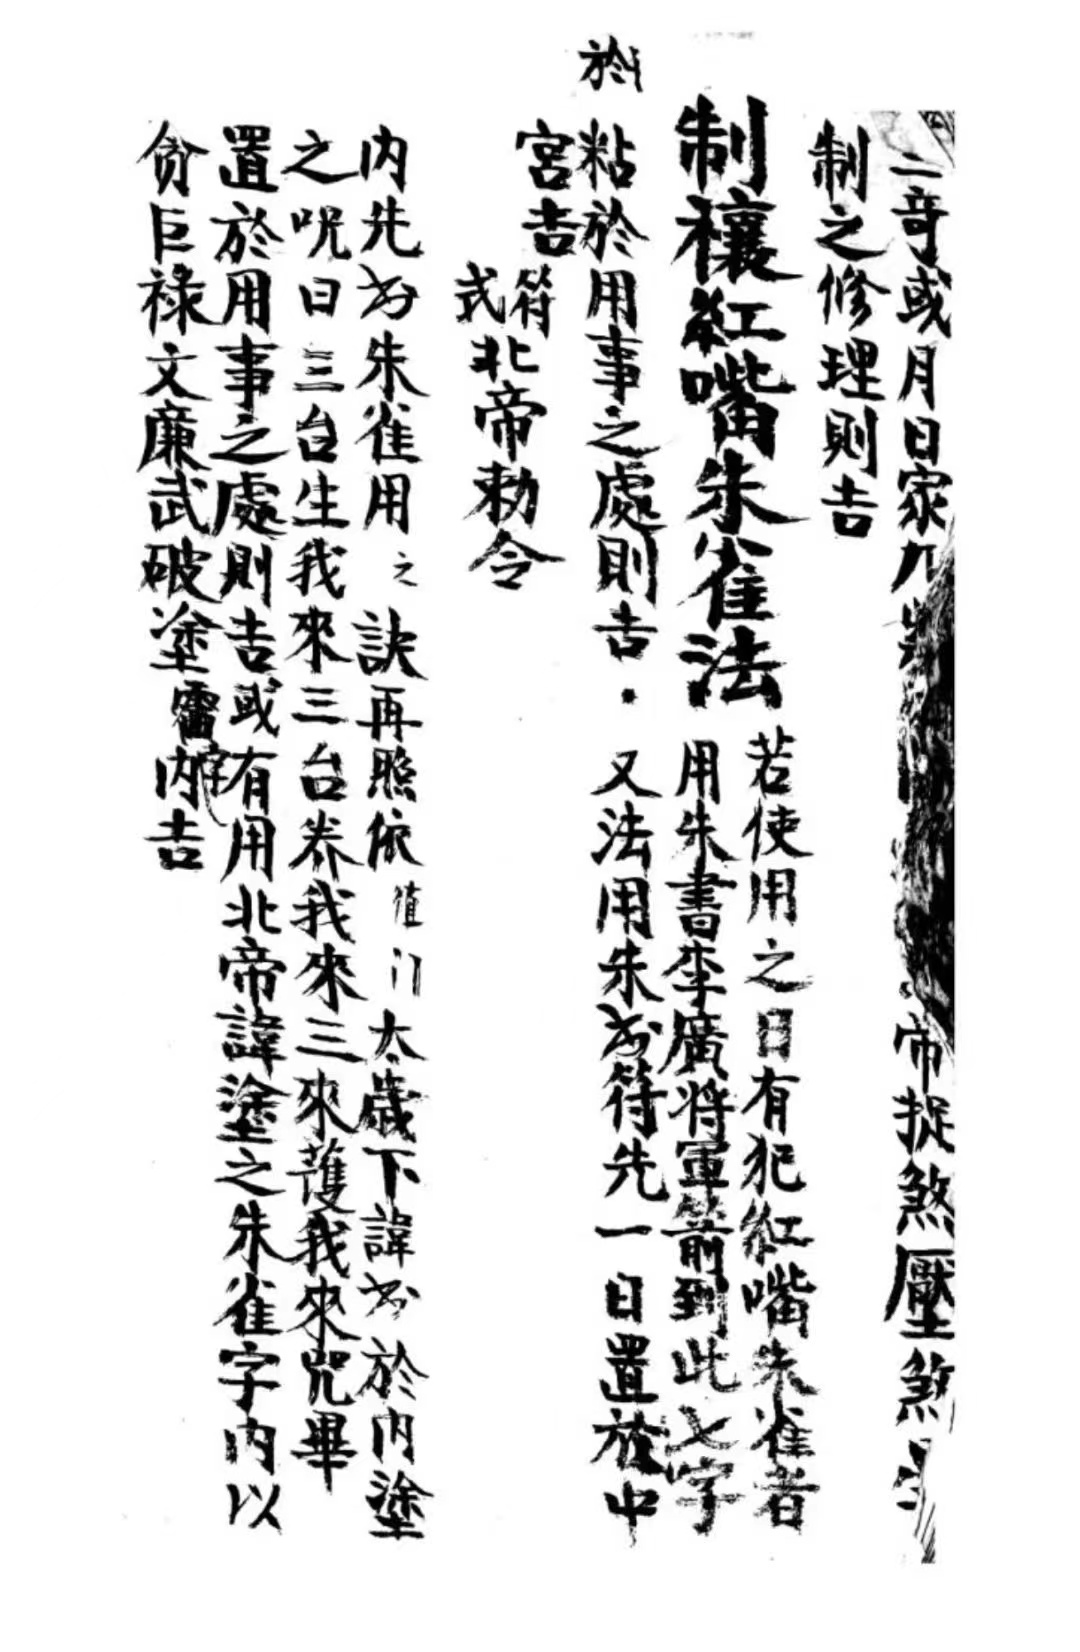 二奇或月日家 帝捉煞壓煞
制之修理則吉
制穰紅嘴朱雀法
若使用之日有犯紅嘴朱雀者
用朱書李廣將軍箭到此七字
於
粘於用事之處則吉·又法用朱书符先一日置於中
宮吉
符式
北帝勅令
内先书朱雀用之訣再照依值门太歲下諱书於内塗
之呪曰三台生我來三台养我來三來護我來咒畢
置於用事之處則吉或有用北帝諱塗之朱雀字内以
贪巨祿文廉武破塗 字内吉